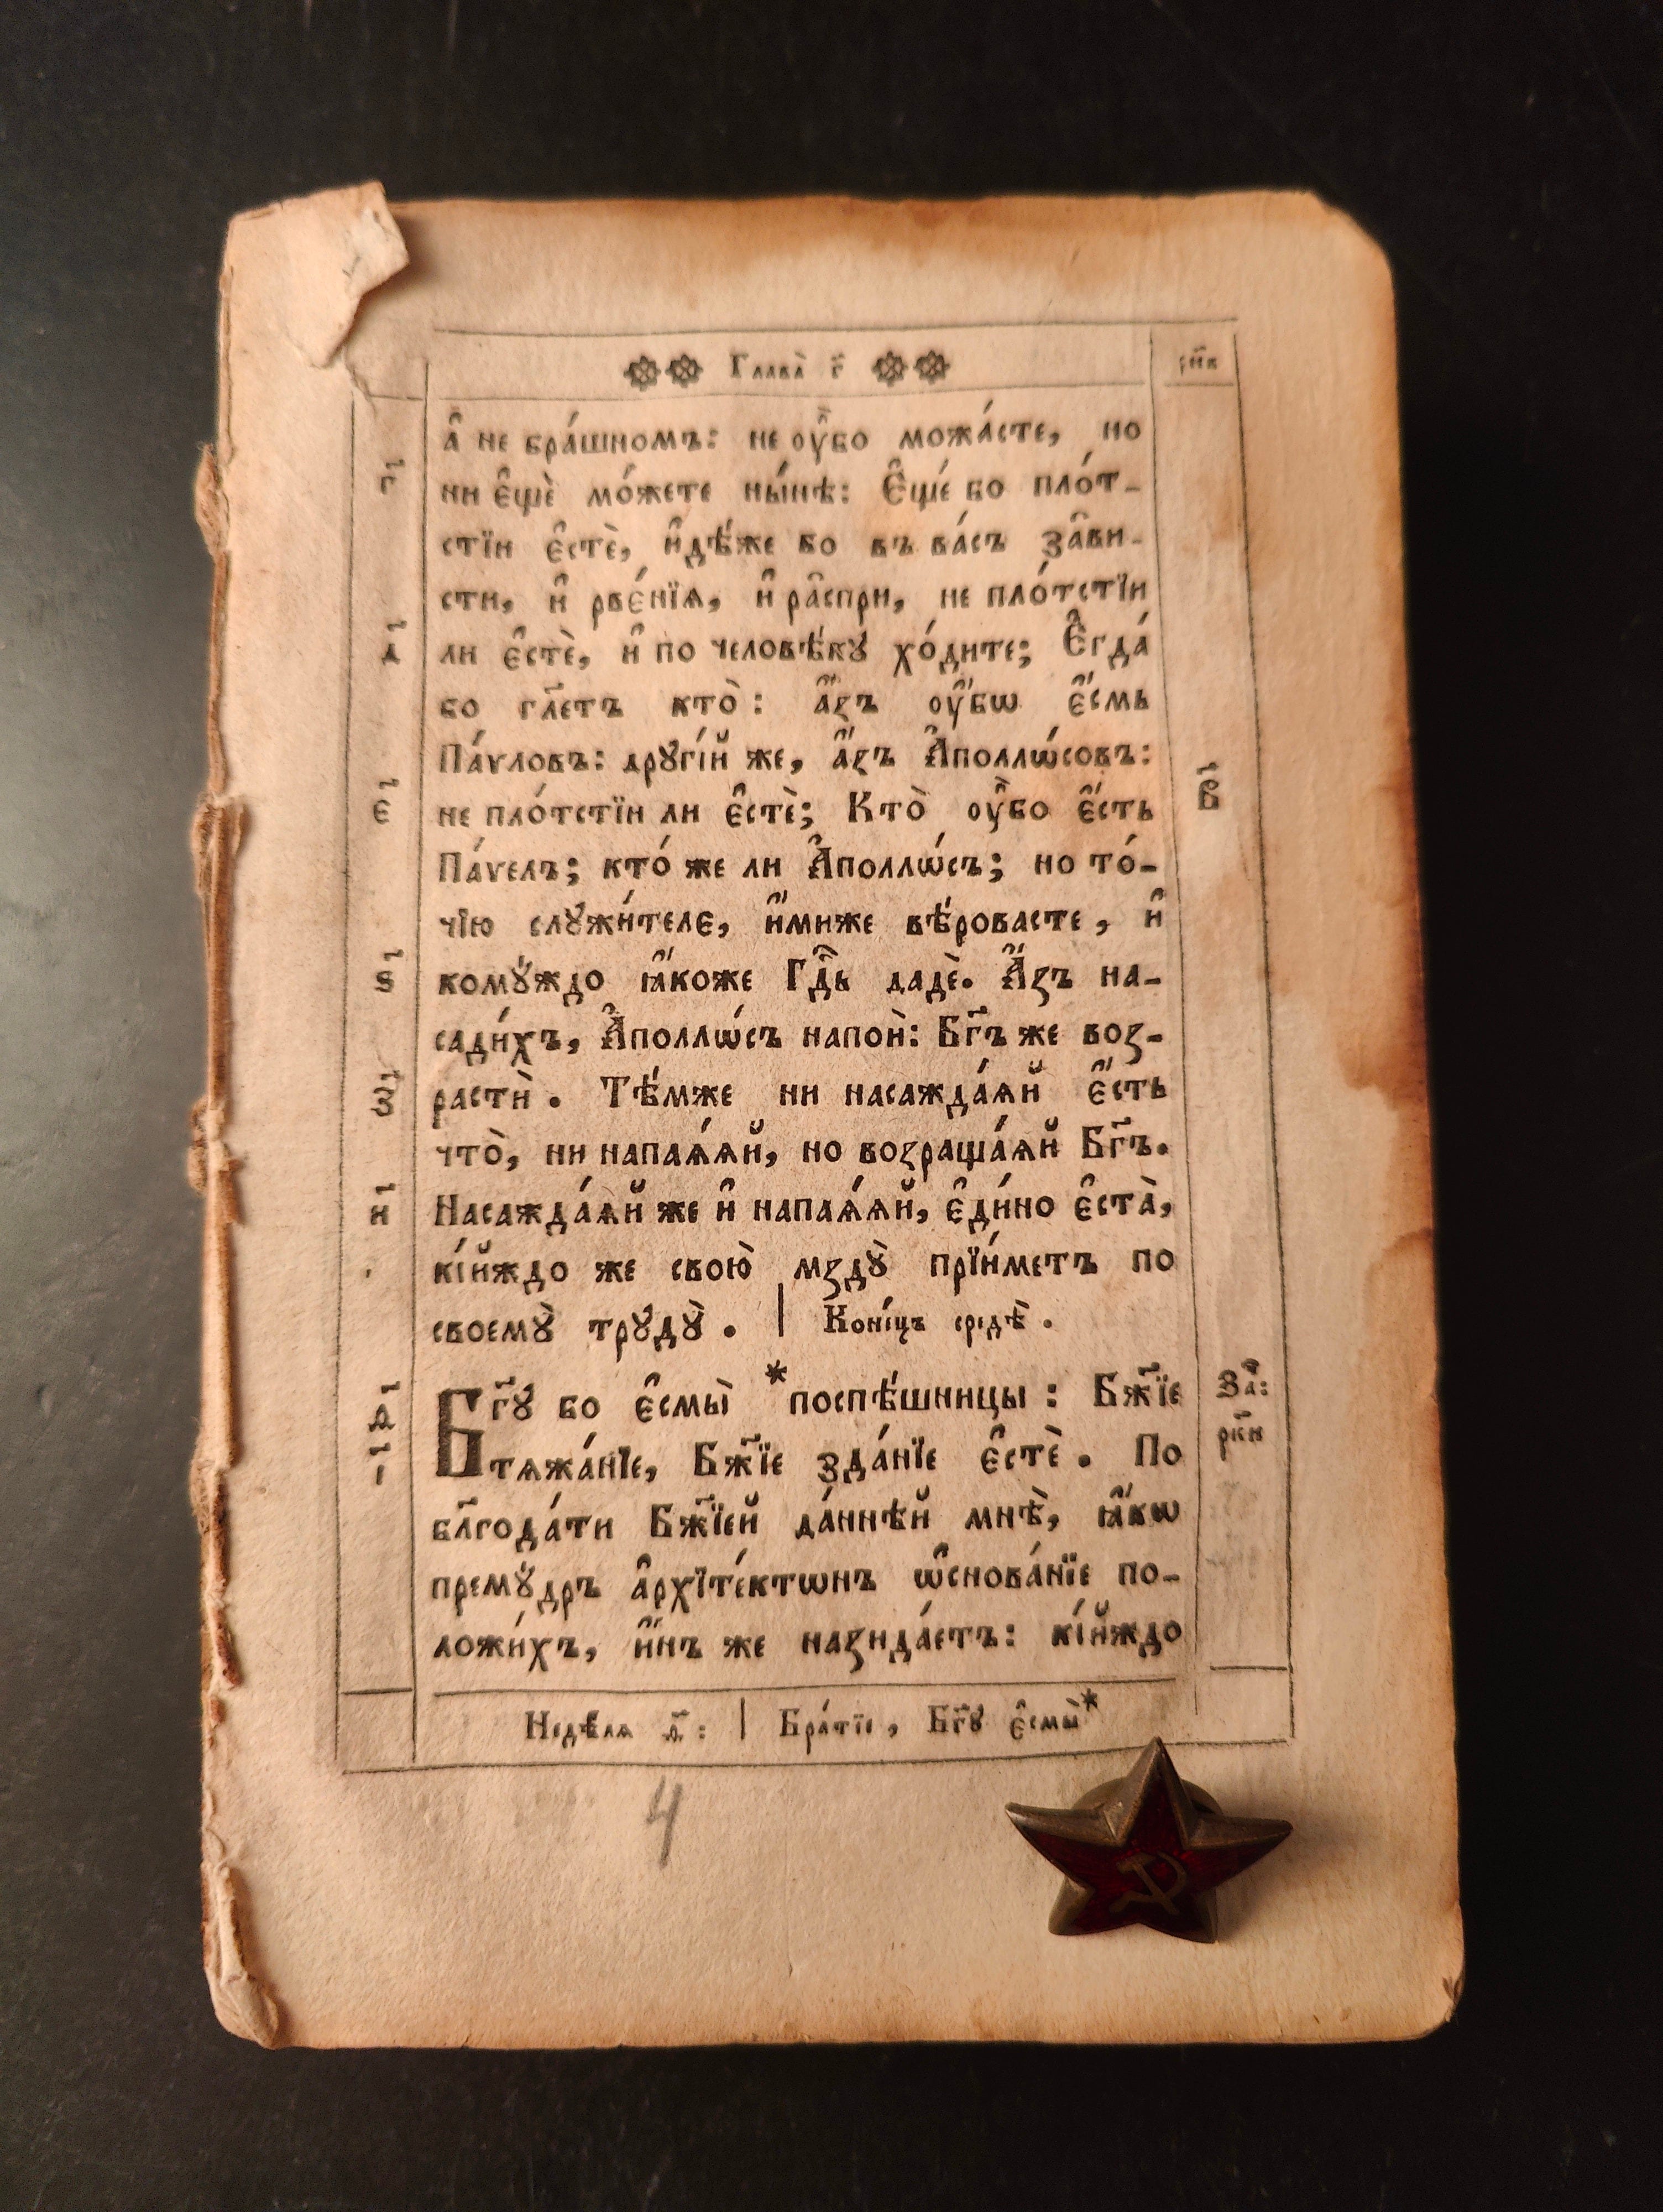 Глава̀ г҃ сн҃в
а҆ не бра́шномъ: не ᲂу҆̀бо можа́сте, но
г҃ ни є҆щѐ мо́жете ны́нѣ: Є҆ще́ бо пло́т-
стїи є҆стѐ, и҆дѣ́же бо въ ва́съ за̑ви-
сти, и҆ рвє́нїѧ, и҆ ра̑спри, не пло́тстїи
д҃ ли є҆стѐ, и҆ по человѣ́кꙋ хо́дите; Є҆гда́
бо гл҃етъ кто̀: а҆́зъ ᲂу҆́бѡ є҆́смь
Па́ѵловъ: дрꙋгі́й же, а҆́зъ А҆поллѡ́совъ: в҃
є҃ не пло́тстїи ли є҆стѐ; Кто̀ ᲂу҆̀бо є҆́сть
Па́ѵелъ; кто́ же ли А҆поллѡ́съ; но то́-
чїю слꙋжи́телє, и҆́миже вѣ́ровасте, и҆
ѕ҃ комꙋ́ждо ꙗ҆́коже Гдⷭ҇ь дадѐ. А҆́зъ на-
сади́хъ, А҆поллѡ́съ напоѝ: Бг҃ъ же воз-
з҃ растѝ. Тѣ́мже ни насажда́ѧй є҆́сть
что̀, ни напаѧ́ѧй, но возраща́ѧй Бг҃ъ.
и҃ Насажда́ѧй же и҆ напаѧ́ѧй, є҆ди́но є҆ста̀,
кі́йждо же свою̀ мздꙋ̀ прїи́метъ по
своемꙋ̀ трꙋдꙋ̀. | Коне́цъ средѣ̀.
ѳ҃ Бг҃ꙋ бо є҆смы̀ *поспѣ́шницы: Бж҃їе За̑:
і҃ тѧжа́нїе, Бж҃їе зда́нїе є҆стѐ. По рк҃и
блг҃ода́ти Бж҃їей да́ннѣй мнѣ̀, ꙗ҆́кѡ
премꙋ́дръ а҆рхїте́ктѡнъ ѡ҆снова́нїе по-
ложи́хъ, и҆́нъ же назида́етъ: кі́йждо
Недѣ́лѧ д҃і: | Бра́тїе, Бг҃ꙋ є҆смы̀*
4